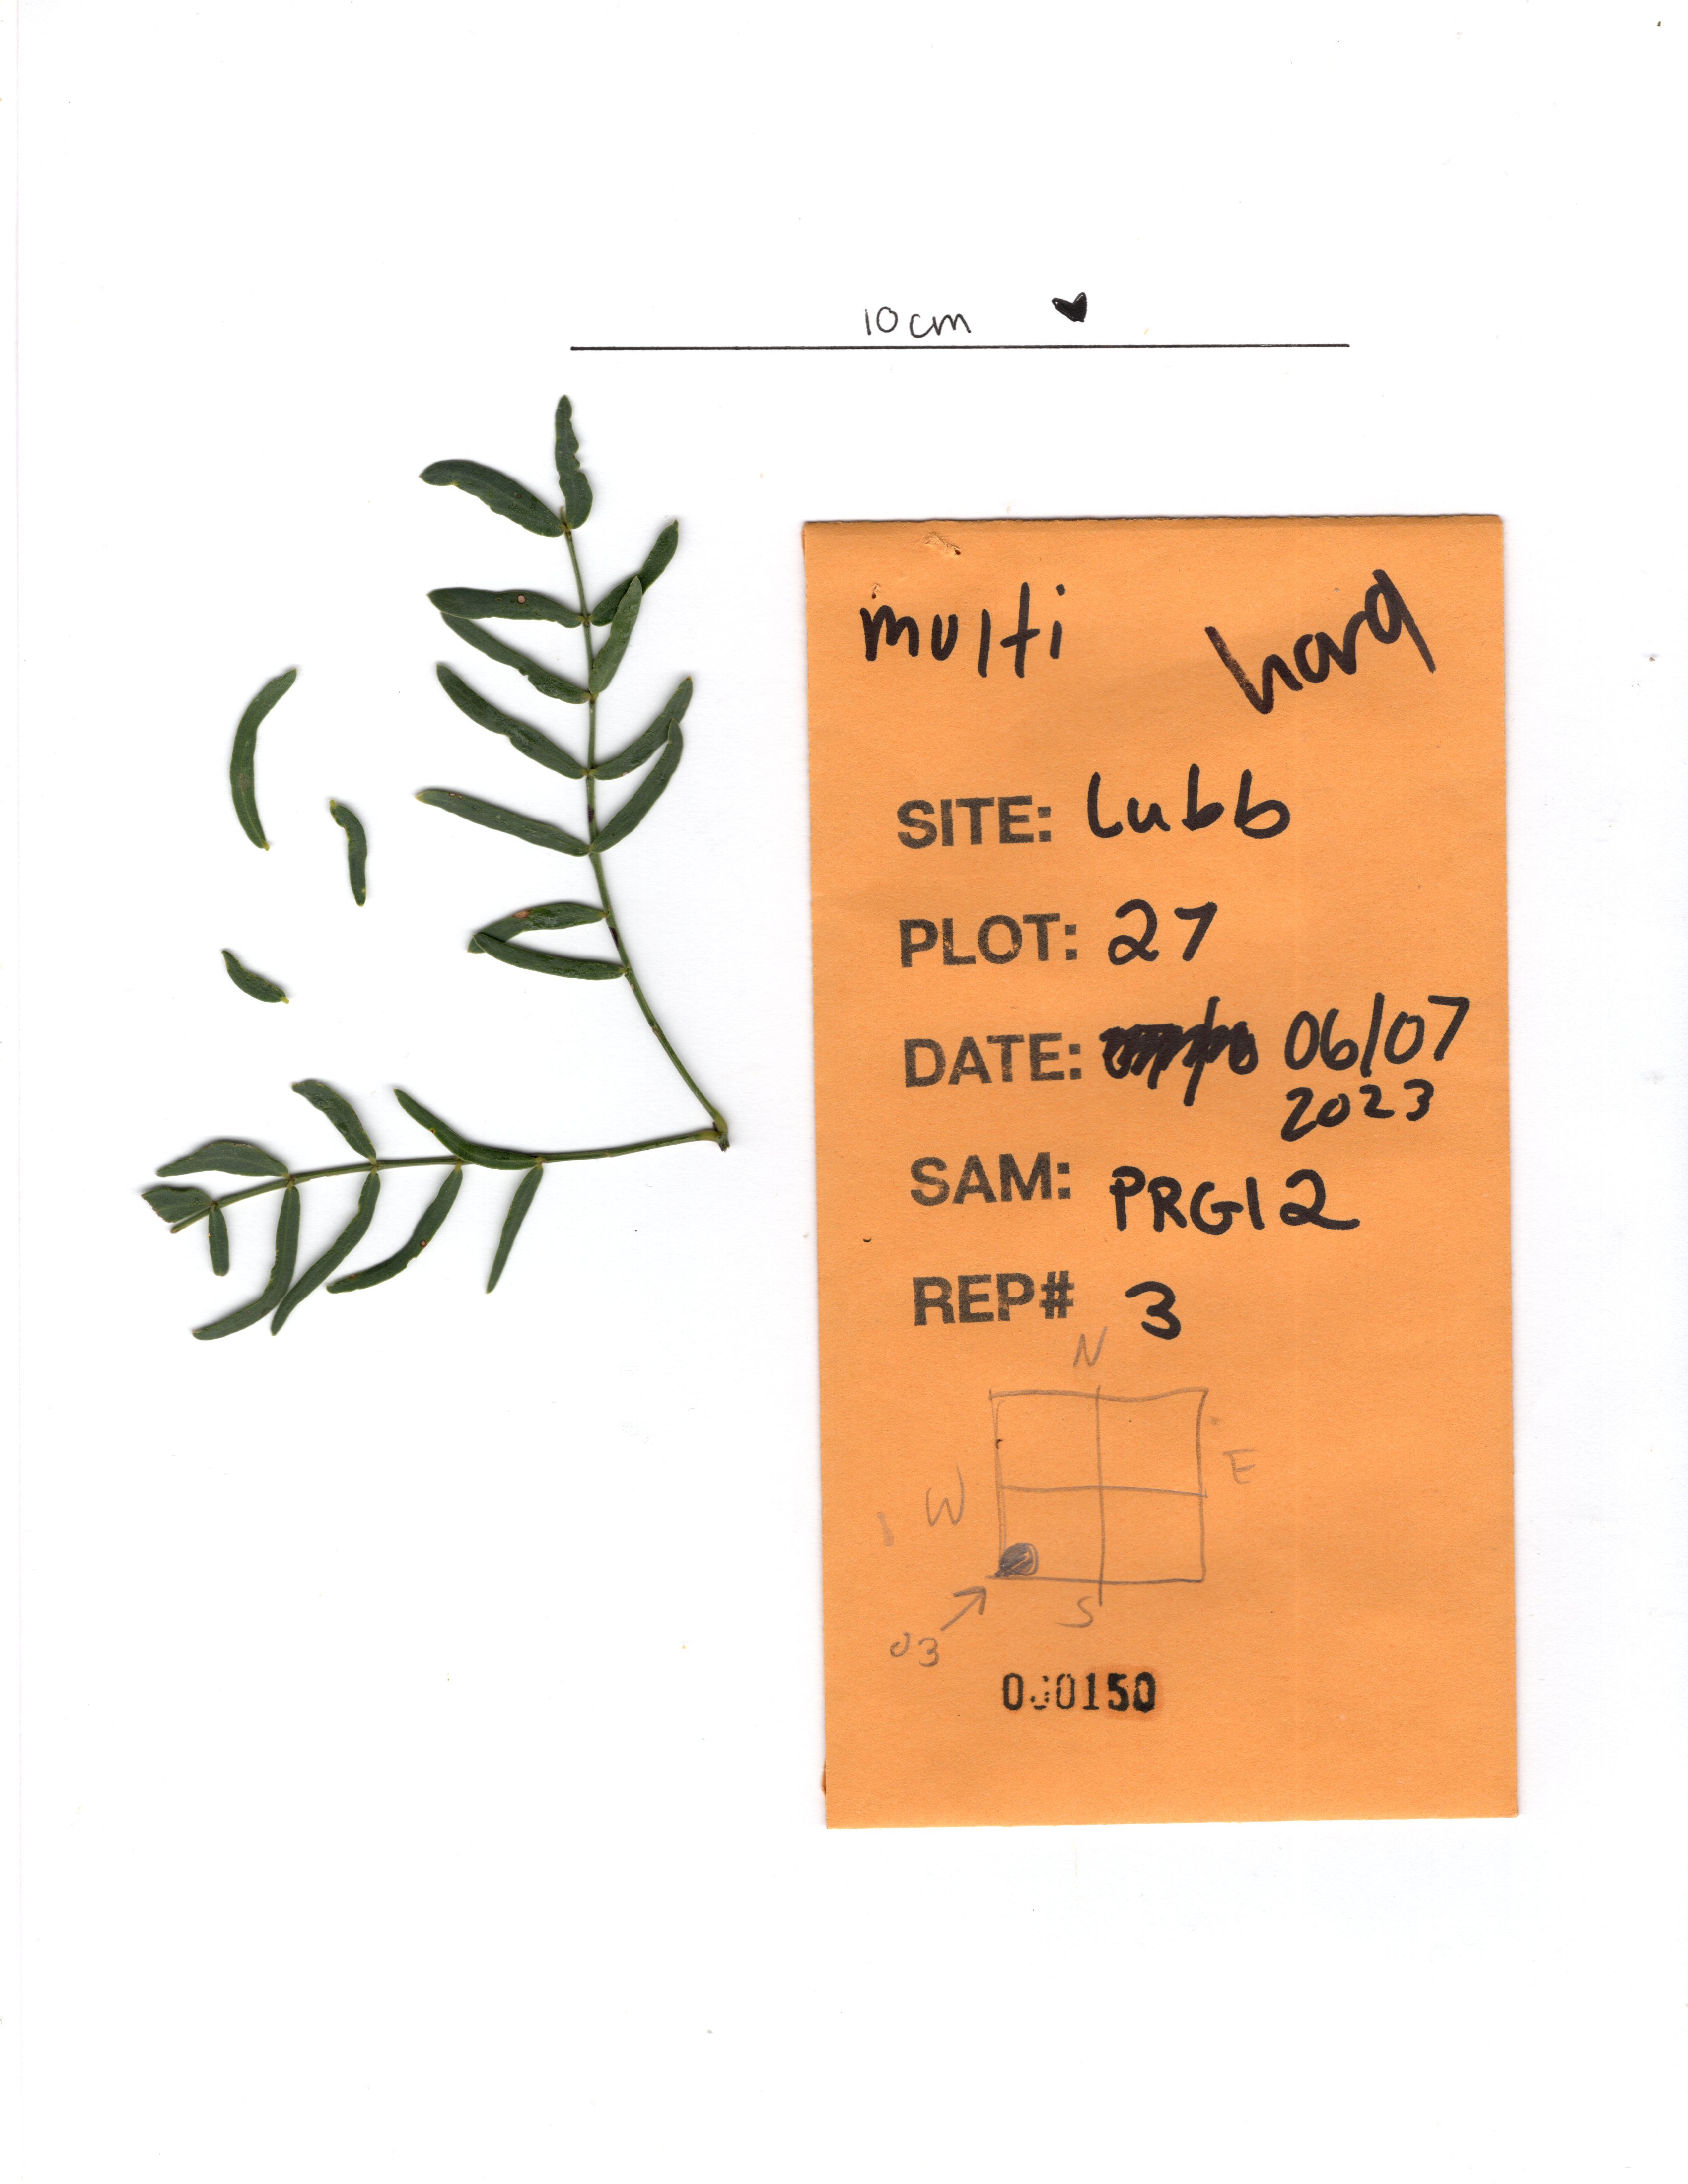 10cm
multi
hard
SITE: Lubb
PLOT: 27
DATE: 06/07
2023
SAM: PRGL2
REP# 3
N
W E
S
03
000150